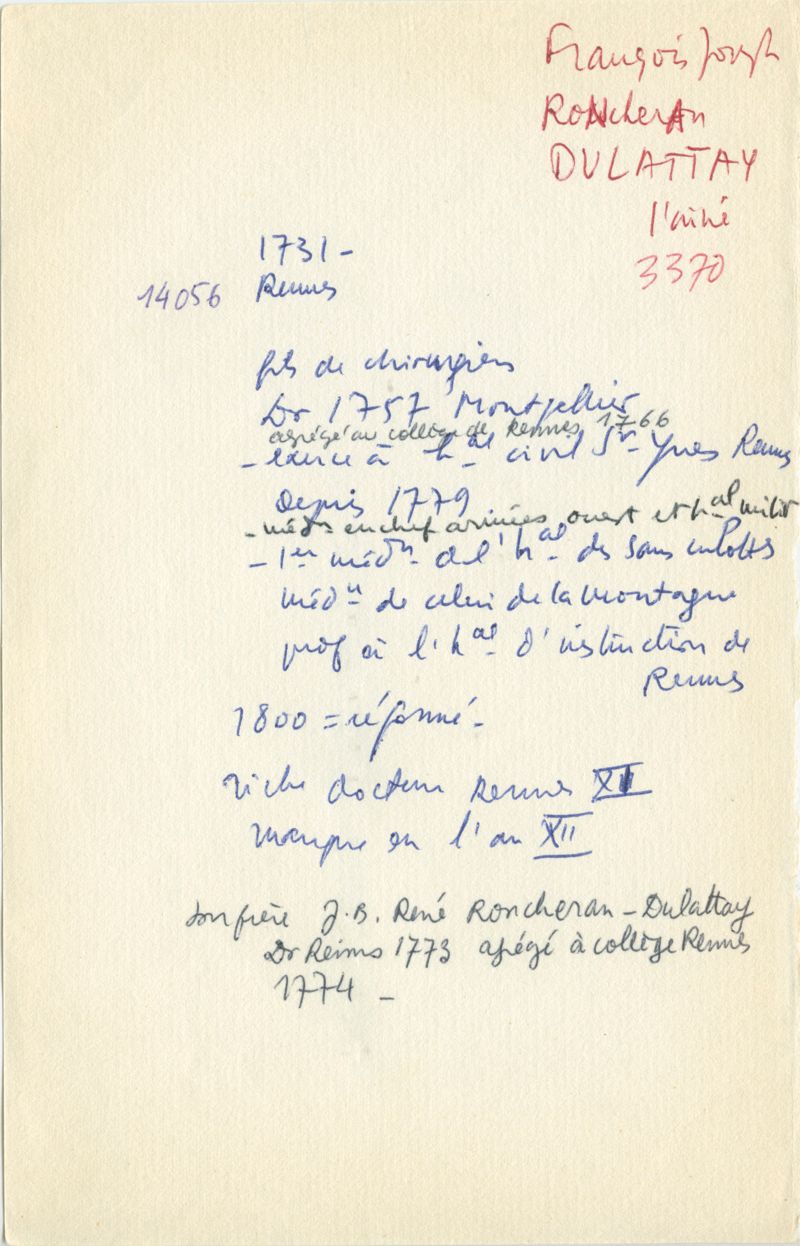 François Joseph
RONcherAn
DULATTAY
l'ainé
3370
1731 -
14056 Rennes
fils de chirurgien
Dr 1757 Montpellier
agrégé au collège de Rennes 1766
- exerce à hal civil St-Yves Rennes
Depuis 1779
- médn en chef armées ouest et hal milit
- 1er médn de l'hal des sans culottes
médn de celui de la Montagne
prof à l'hal d'instruction de
Rennes
1800 = réformé -
riche docteur Rennes XI
manque en l'an XII
son frère J.B. René Roncheran - Dulattay
Dr Reims 1773 agrégé à collège Rennes
1774 -